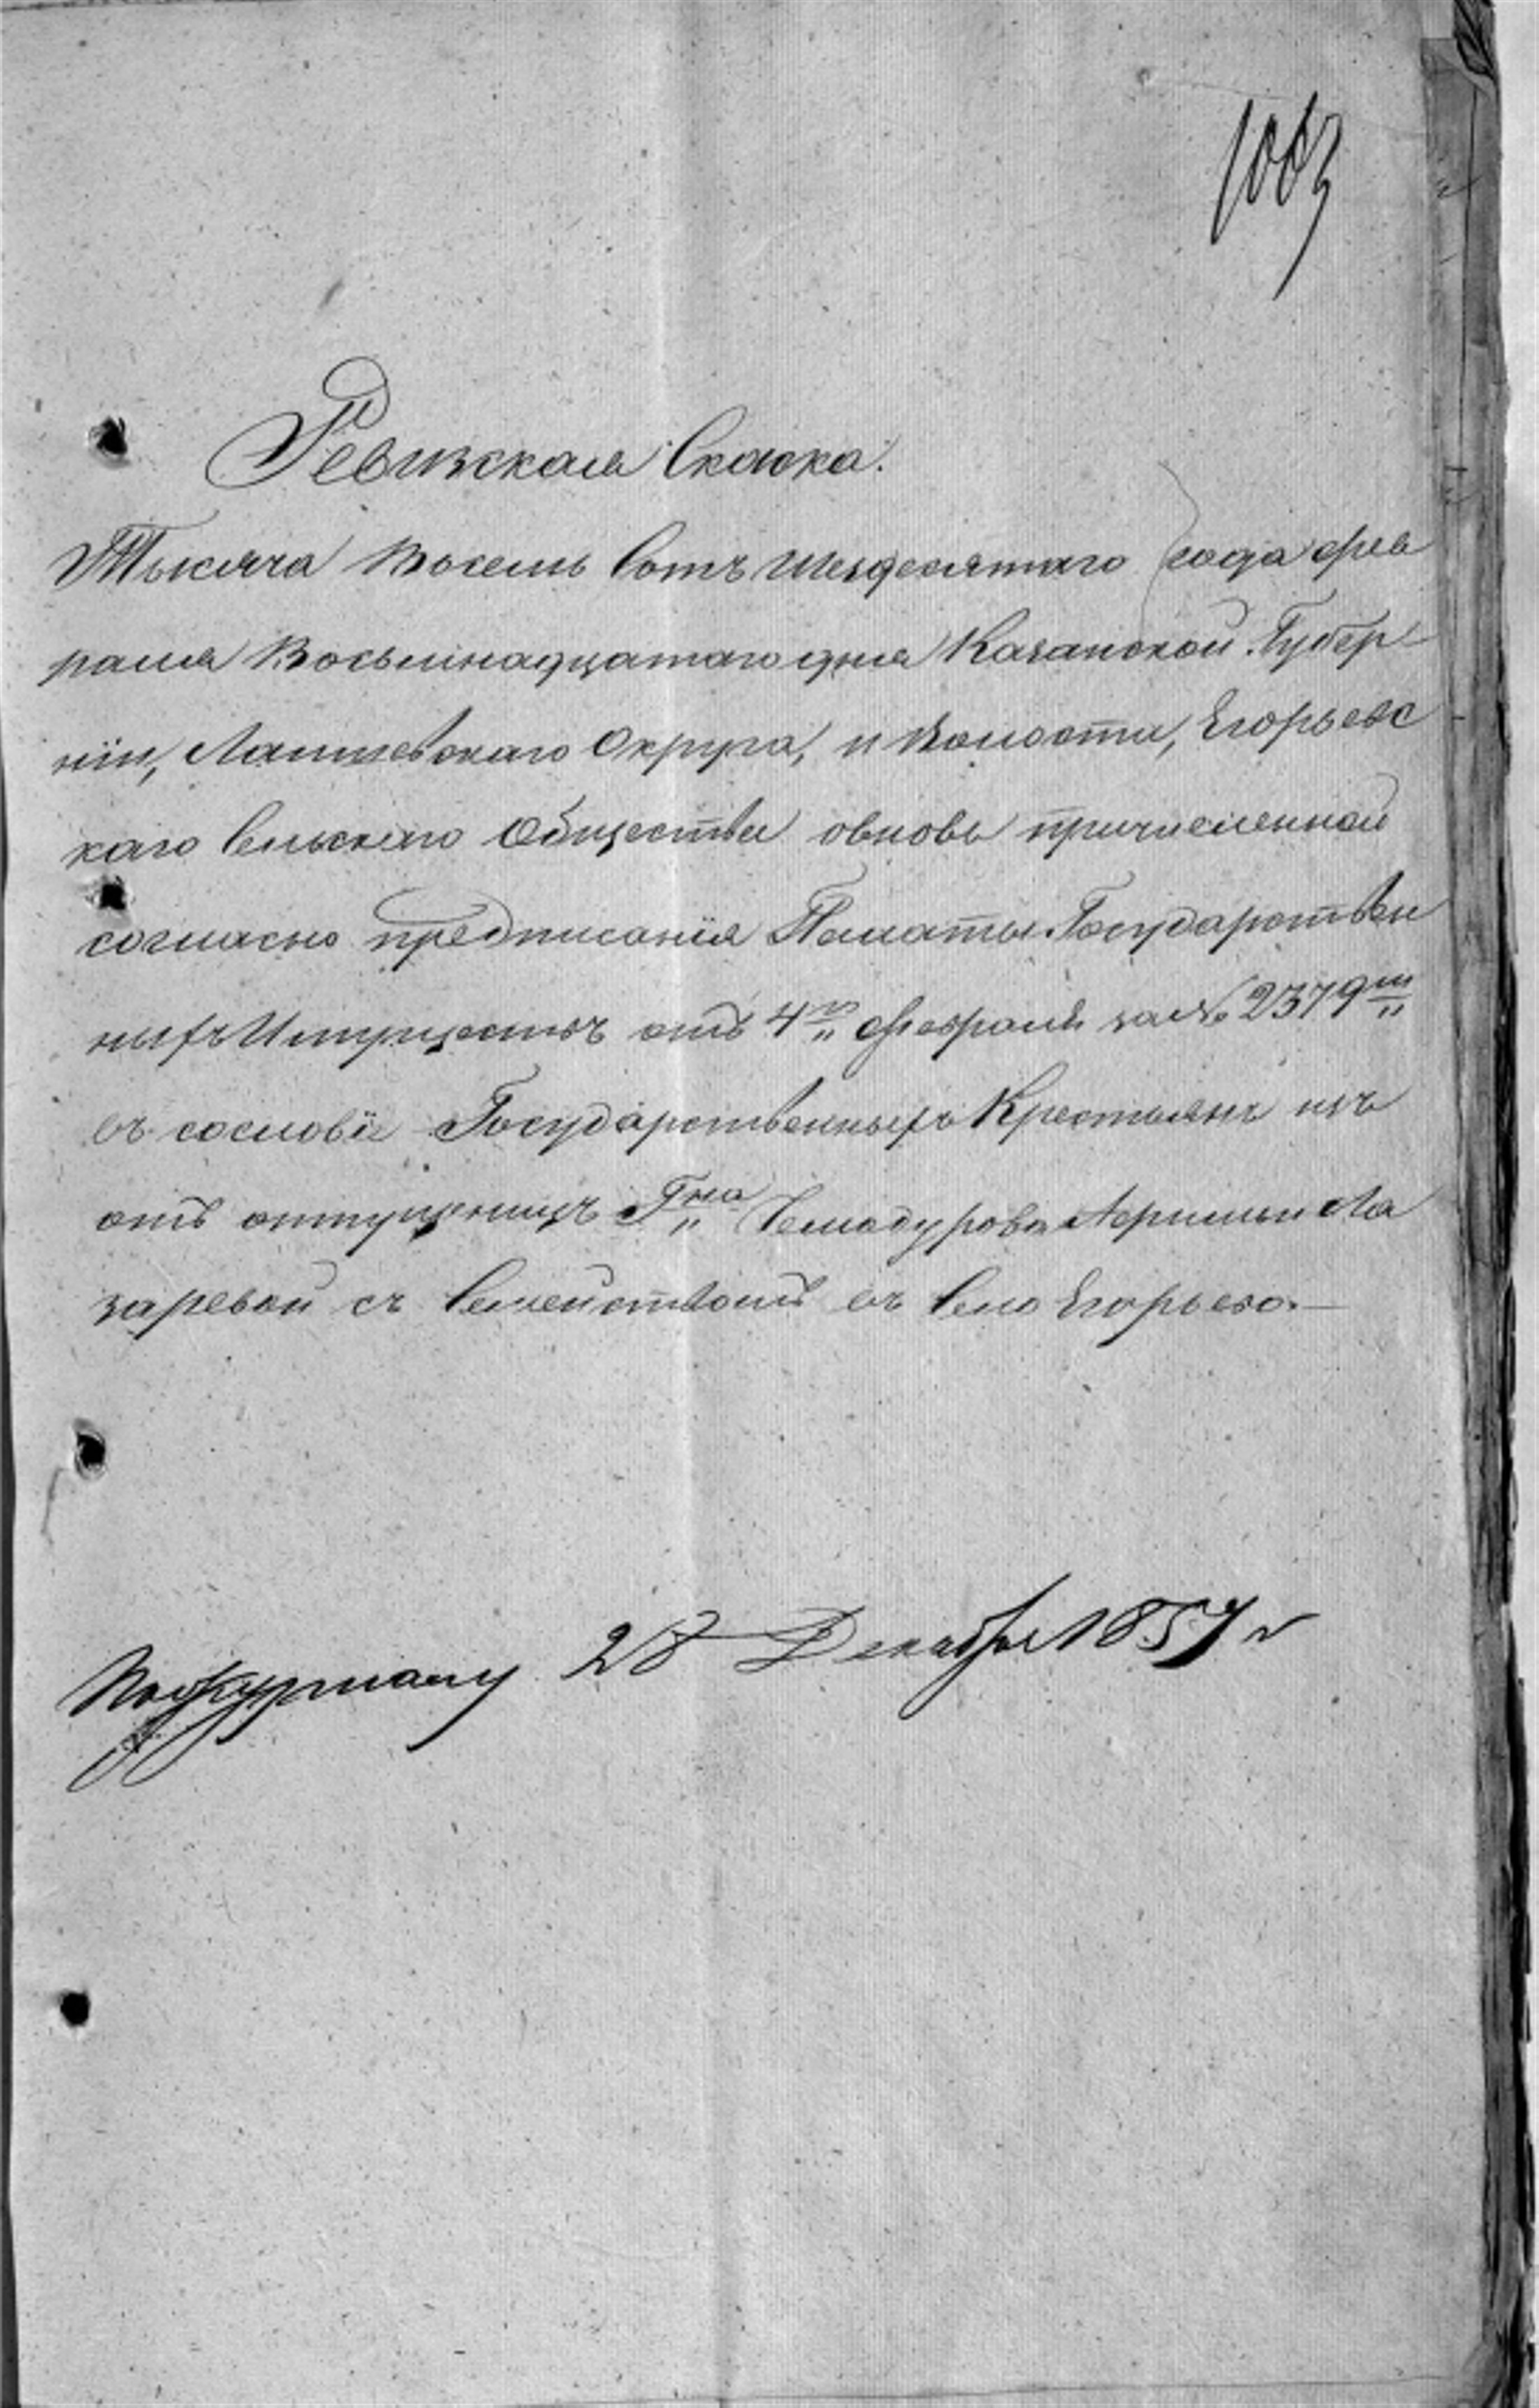 1003
Ревизская Сказка.
Тысяча Восемь Сотъ шездесятаго года фев
раля Восьмнадцатаго дня Казанской Губер
ніи, Лаишевскаго Округа, и Волости, Егорьевс
каго Сельскаго Общества овновь причисленной
согласно предписанія Палаты Государствен
ныхъ Имуществъ отъ 4го февраля за № 2379мъ
въ сословіе Государственныхъ Крестьянъ изъ
отъ отпущеницъ Гна Лазаревой
заревой съ Семействомъ въ Село Егорьево.—
28 Декабря 1857 г